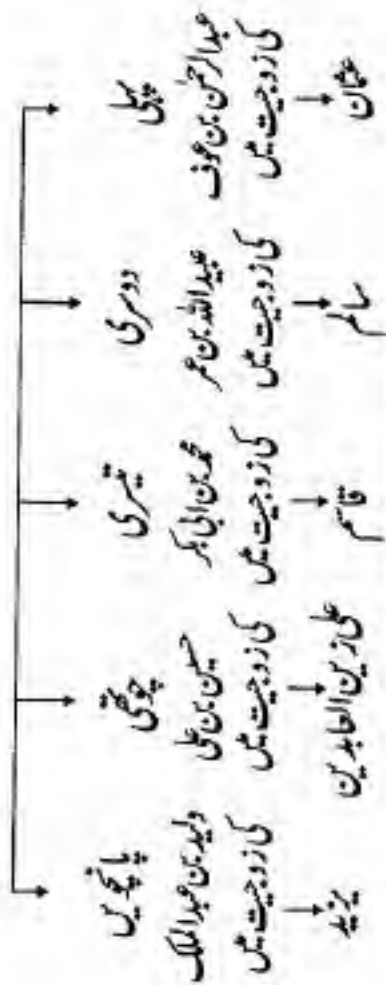 پہلی
عبدالرحمٰن بن عوف
کی زوجیت میں
عثمان
دوسری
عبید اللہ بن عمر
کی زوجیت میں
سالم
تیسری
محمد بن ابی بکر
کی زوجیت میں
قاسم
چوتھی
حسین بن علی
کی زوجیت میں
علی زین العابدین
پانچویں
ولید بن عبدالملک
کی زوجیت میں
یزید